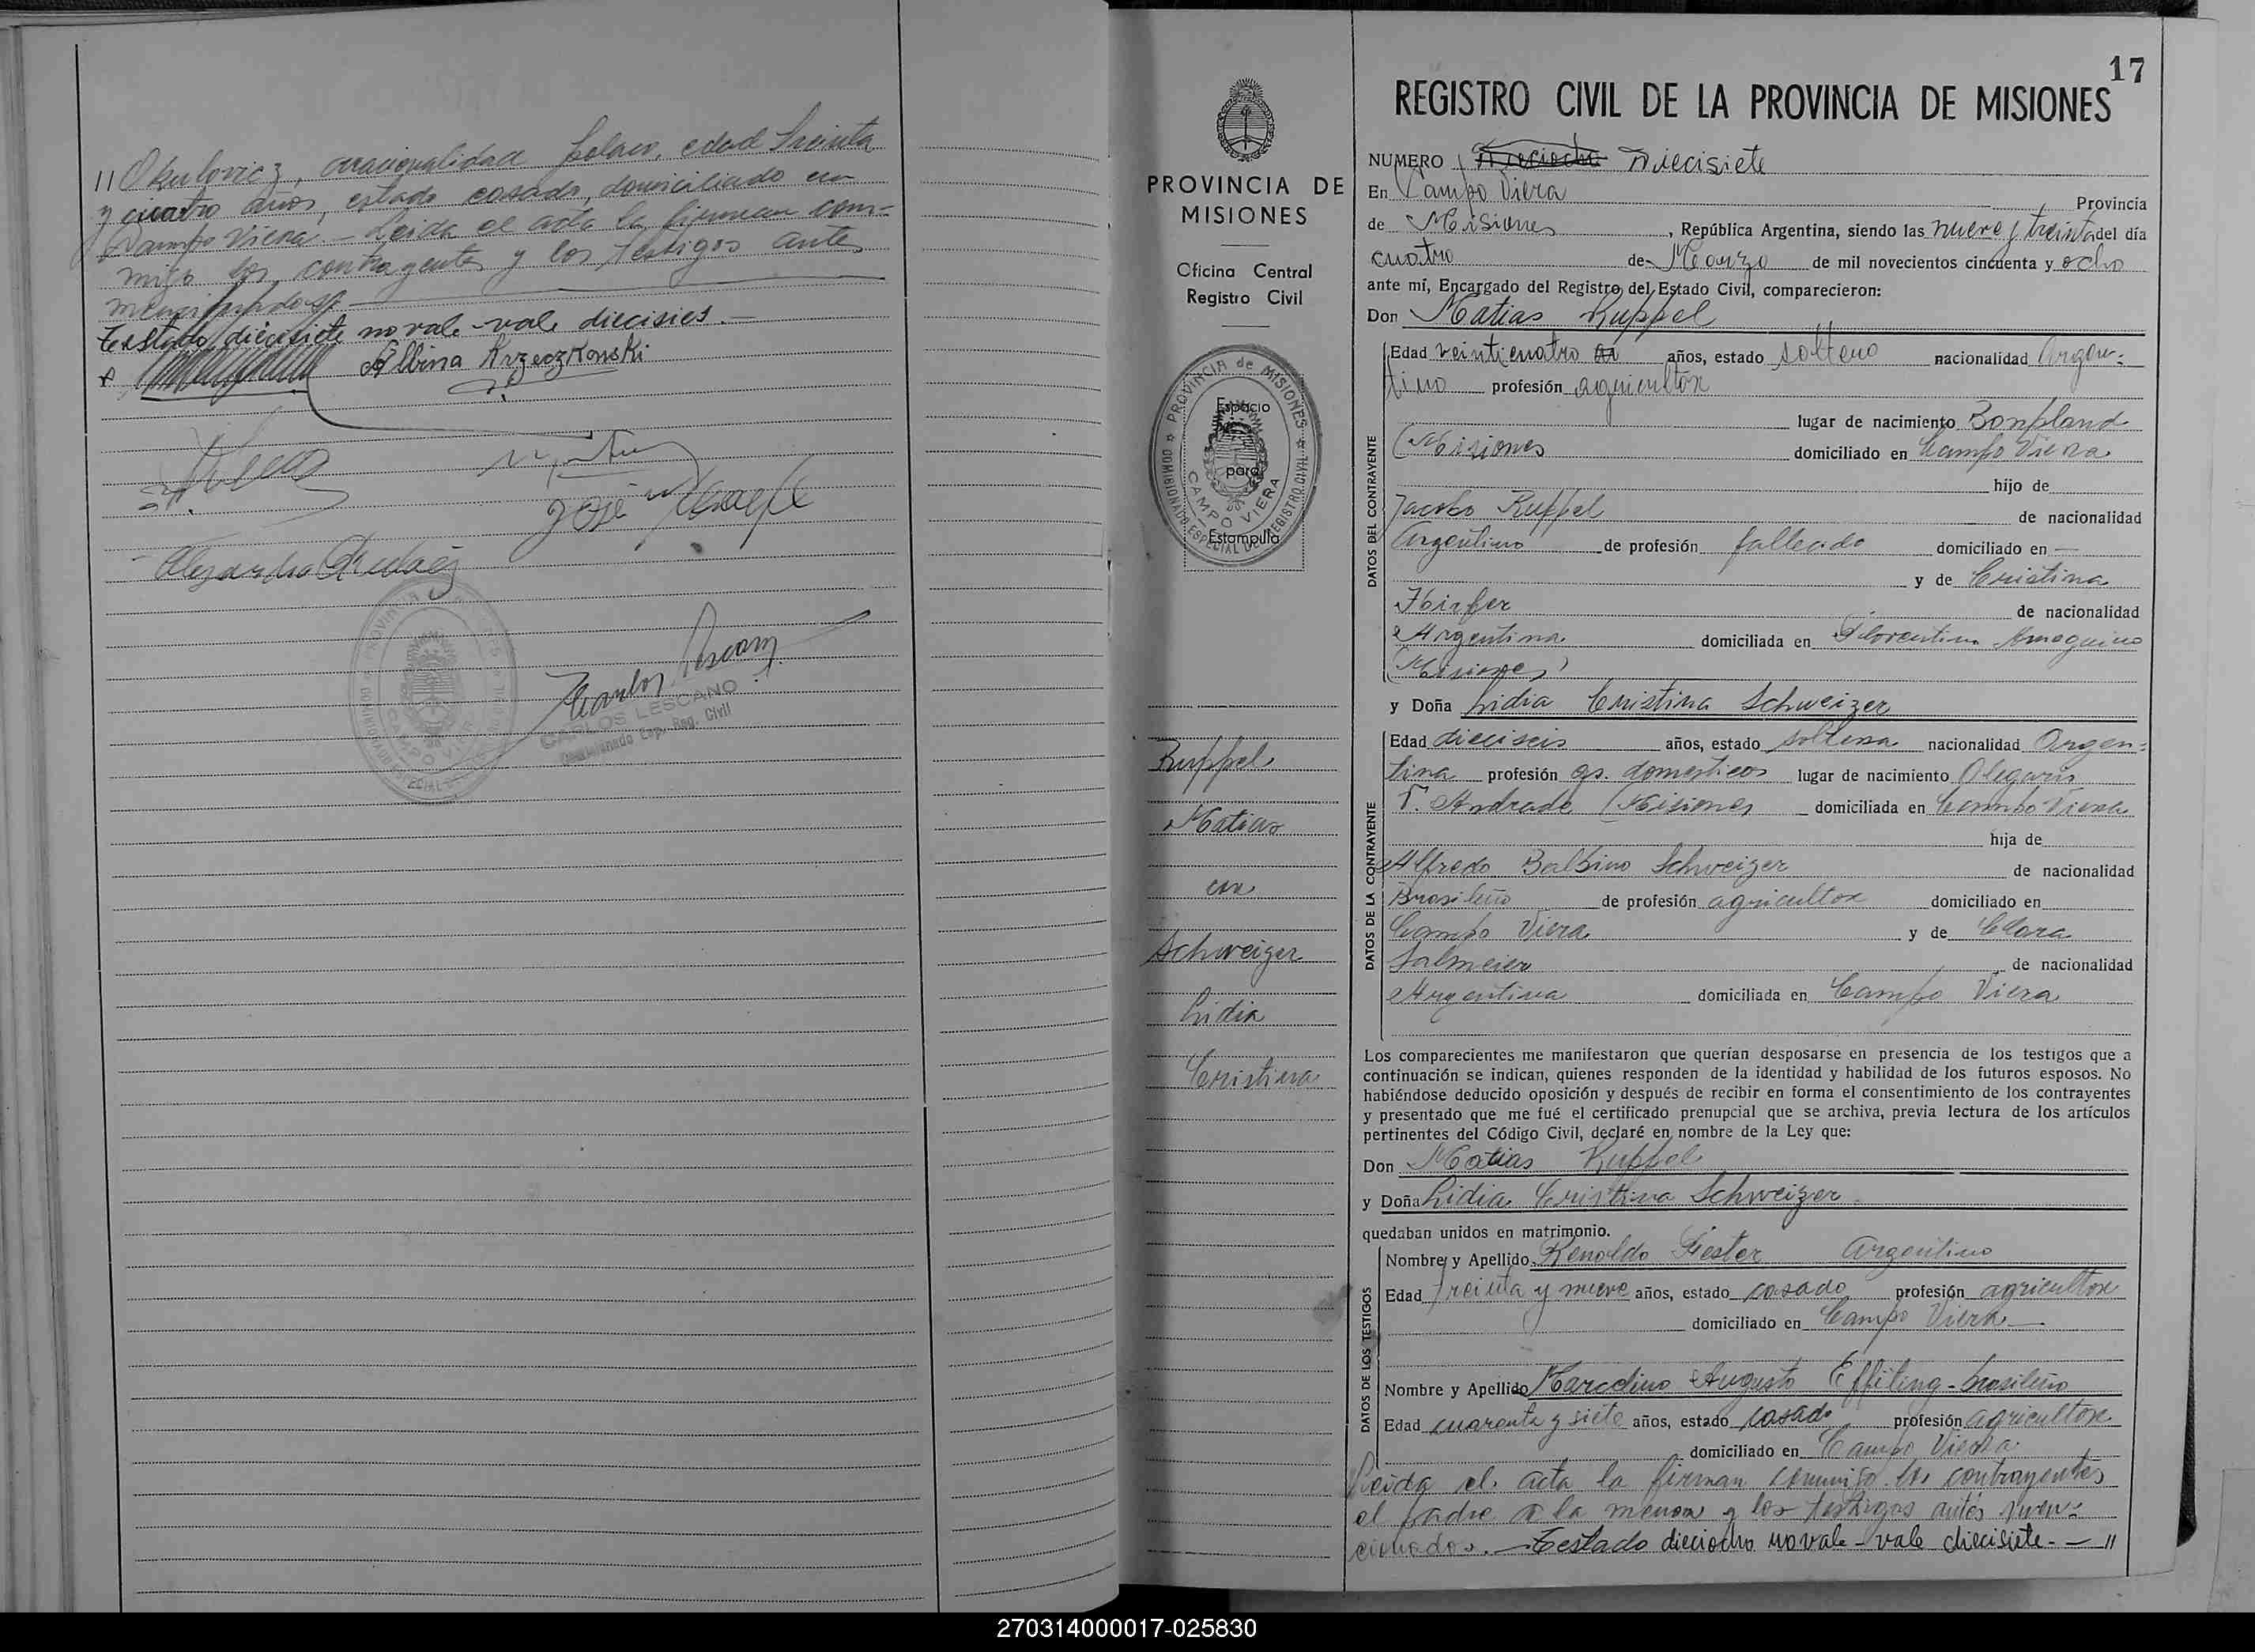 // Okulovicz, nacionalidad polaco, edad treinta
y cuatro años, estado casado, domiciliado en
Campo Viera.- Leida el acta la firman con-
migo los contrayentes y los testigos antes
mencionados
Testado diecisiete no vale - vale dieciseis.-
Albina Krzeczkowski
José
Carlos Lescano
CARLOS LESCANO
Comisionado Esp. Reg. Civil
PROVINCIA DE
MISIONES
Oficina Central
Registro Civil
PROVINCIA de MISIONES
COMISIONADO ESPECIAL DE REGISTRO CIVIL
CAMPO VIERA
Espacio
para
Estampilla
Ruppel
Matias
con
Schweizer
Lidia
Cristina
17
REGISTRO CIVIL DE LA PROVINCIA DE MISIONES
NUMERO Dieciocho Diecisiete
En Campo Viera Provincia
de Misiones, República Argentina, siendo las nueve y treinta del día
cuatro de Marzo de mil novecientos cincuenta y ocho
ante mí, Encargado del Registro del Estado Civil, comparecieron:
Don Matias Ruppel
DATOS DEL CONTRAYENTE
Edad veinticuatro años, estado soltero nacionalidad Argen-
tino profesión agricultor
lugar de nacimiento Bonpland
(Misiones domiciliado en Campo Viera
hijo de
Jacobo Ruppel de nacionalidad
Argentino de profesión fallecido domiciliado en —
y de Cristina
de nacionalidad
Argentina domiciliada en Florentino Ameguino
(Misiones)
y Doña Lidia Cristina Schweizer
DATOS DE LA CONTRAYENTE
Edad dieciseis años, estado soltera nacionalidad Argen-
tina profesión qs. domesticos lugar de nacimiento Olegario
V. Andrade (Misiones domiciliada en Campo Viera
hija de
Alfredo Balbino Schweizer de nacionalidad
Brasileño de profesión agricultor domiciliado en
Campo Viera y de Clara
Salmeier de nacionalidad
Argentina domiciliada en Campo Viera
Los comparecientes me manifestaron que querían desposarse en presencia de los testigos que a
continuación se indican, quienes responden de la identidad y habilidad de los futuros esposos. No
habiéndose deducido oposición y después de recibir en forma el consentimiento de los contrayentes
y presentado que me fué el certificado prenupcial que se archiva, previa lectura de los artículos
pertinentes del Código Civil, declaré en nombre de la Ley que:
Don Matias Ruppel
y Doña Lidia Cristina Schweizer
quedaban unidos en matrimonio.
DATOS DE LOS TESTIGOS
Nombre y Apellido Renoldo Fiester Argentino
Edad treinta y nueve años, estado casado profesión agricultor
domiciliado en Campo Viera —
Nombre y Apellido Marcelino Augusto Effiting - brasileño
Edad cuarenta y siete años, estado casado profesión agricultor
domiciliado en Campo Viera
Leida el acta la firman conmigo los contrayentes
el padre de la menor y los testigos antes men-
cionados.- Testado dieciocho no vale - vale diecisiete.- — //
270314000017-025830